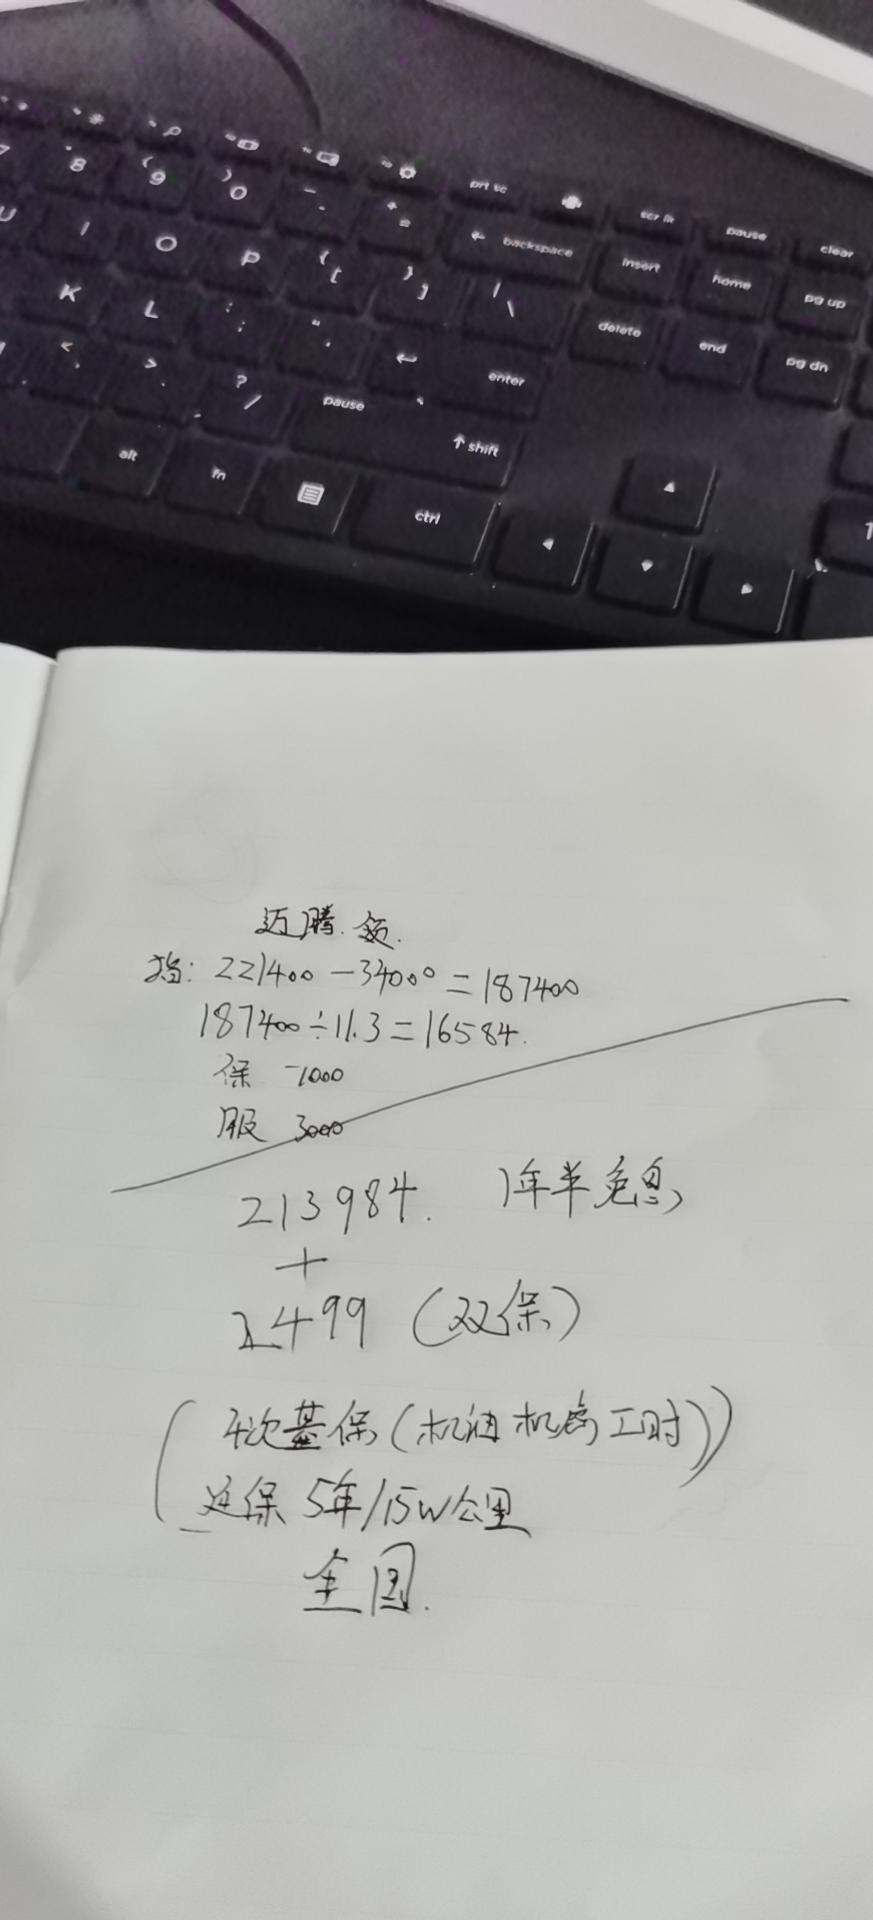 prt sc
scr lk
pause
clear
7 8 9 0 - _ + =
backspace
insert
home
pg up
U I O P { [ } ] | \
delete
end
pg dn
K L : ; " '
enter
< , > . ? /
pause
shift
alt
fn
ctrl
迈腾.
指: 221400-34000=187400
187400÷11.3=16584.
保 1000
服 3000
213984. 1年半免息
+
2499 (双保)
(4次基保(机油 机滤 工时))
延保 5年/15w公里
全国.